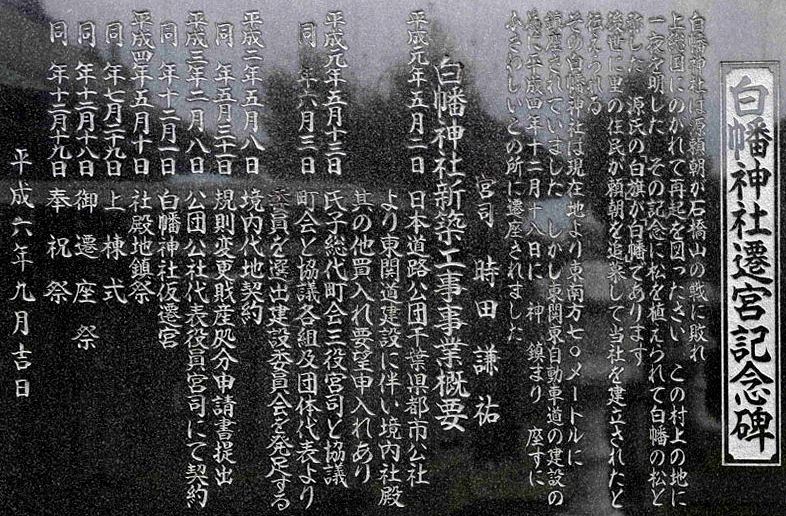 白幡神社遷宮記念碑
白幡神社は源頼朝が石橋山の戦に敗れ
上総国にのがれて再起を図ったさい この村上の地に
一夜を明した その記念に松を植えられて白幡の松と
称した 源氏の白旗が白幡であります
後世に里の住民が頼朝を追慕して当社を建立されたと
伝えられる
その白幡神社は現在地より東南方七〇メートルに
鎮座されていました しかし東関東自動車道の建設の
為に平成四年十二月十八日に 神 鎮まり 座すに
ふさわしいとの所に遷座されました
宮司 時田 謙祐
白幡神社新築工事事業概要
平成元年五月二日 日本道路公団千葉県都市公社
より東関道建設に伴い境内社殿
其の他買入れ要望申入れあり
平成元年五月十三日 氏子総代町会三役宮司と協議
同 年六月三日 町会と協議各組及団体代表より
委員を選出建設委員会を発足する
平成二年五月八日 境内代地契約
同 年五月三十一日 規則変更財産処分申請書提出
平成三年二月八日 公団公社代表役員宮司にて契約
同 年十二月一日 白幡神社仮遷宮
平成四年五月十日 社殿地鎮祭
同 年七月二十九日 上棟式
同 年十二月十八日 御遷座祭
同 年十二月十九日 奉祝祭
平成六年九月吉日